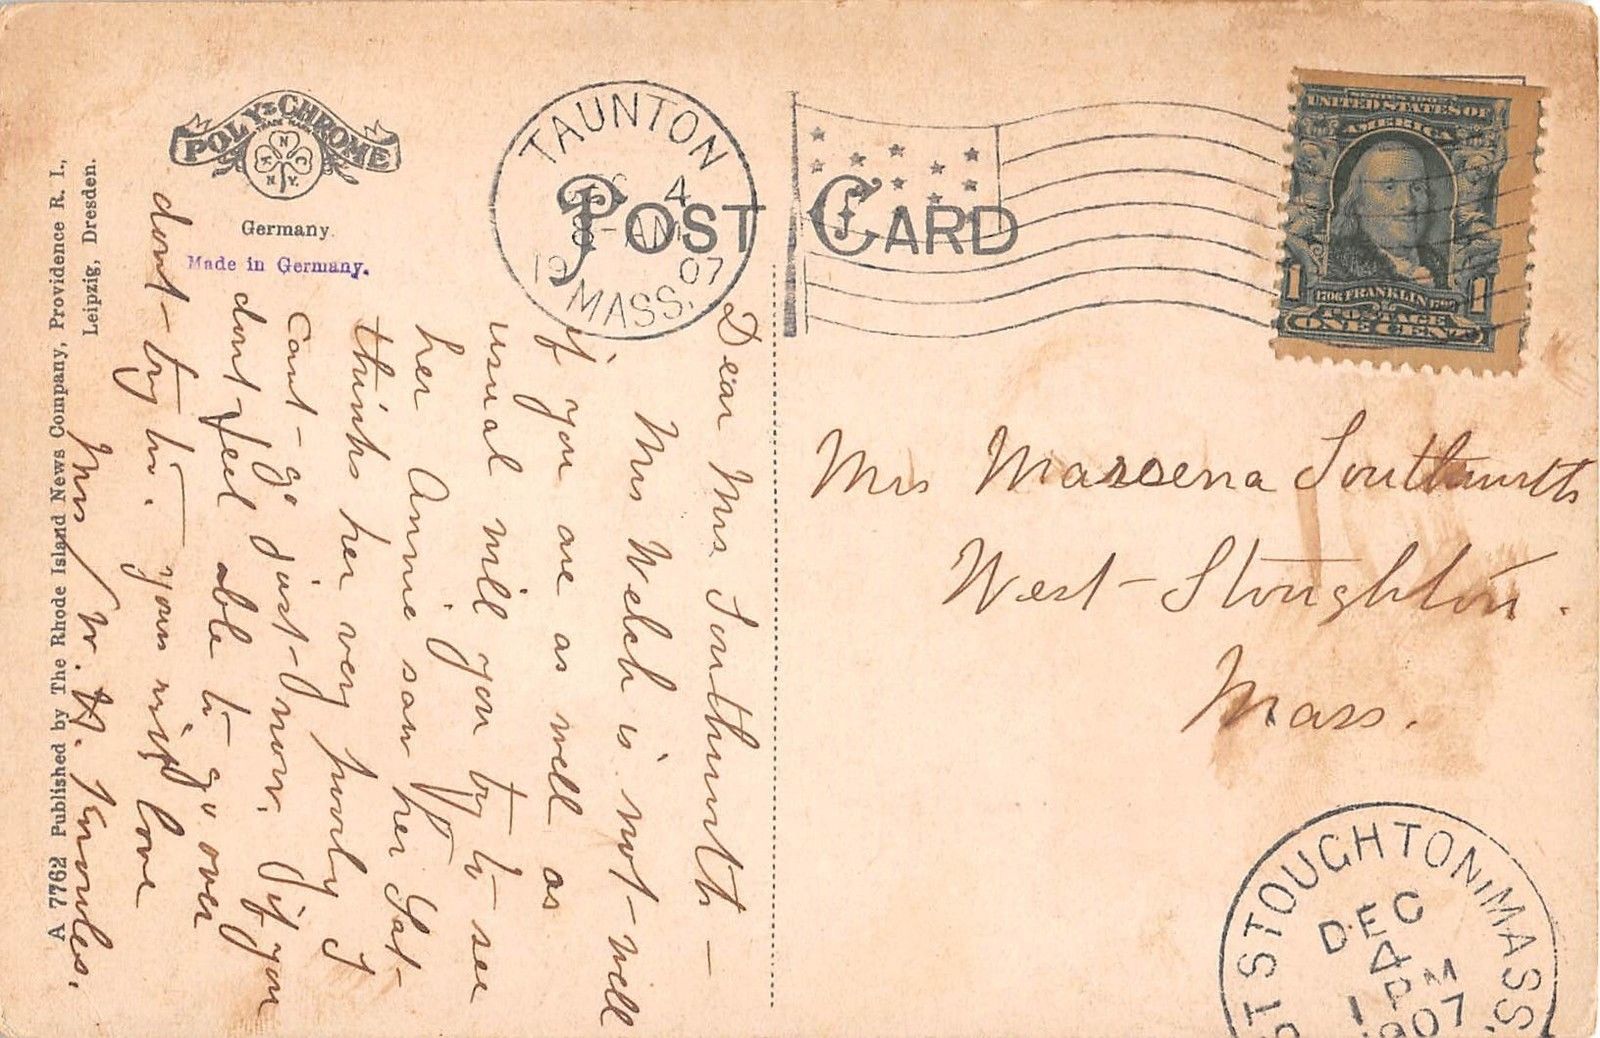 POLY-CHROME
TRADE MARK
N
K C
N.Y.
Germany.
Made in Germany.
A 7762 Published by The Rhode Island News Company, Providence R. I.,
Leipzig, Dresden.
TAUNTON
DEC 4
8-AM
1907
MASS.
POST CARD
SERIES 1902
UNITED STATES OF
AMERICA
1 1706 FRANKLIN 1790 1
POSTAGE
ONE CENT
Dear Mrs. Southworth —
Mrs Welch is not well
if you are as well as
usual will you try to see
her Annie saw her Sat-
thinks her very poorly I
cant go just now. If you
dont feel able to go over
dont try to. your love
Mrs W. H. Knowles.
Mrs Massena Southworth
West Stoughton.
Mass.
STOUGHTON, MASS.
DEC
4
1 PM
1907